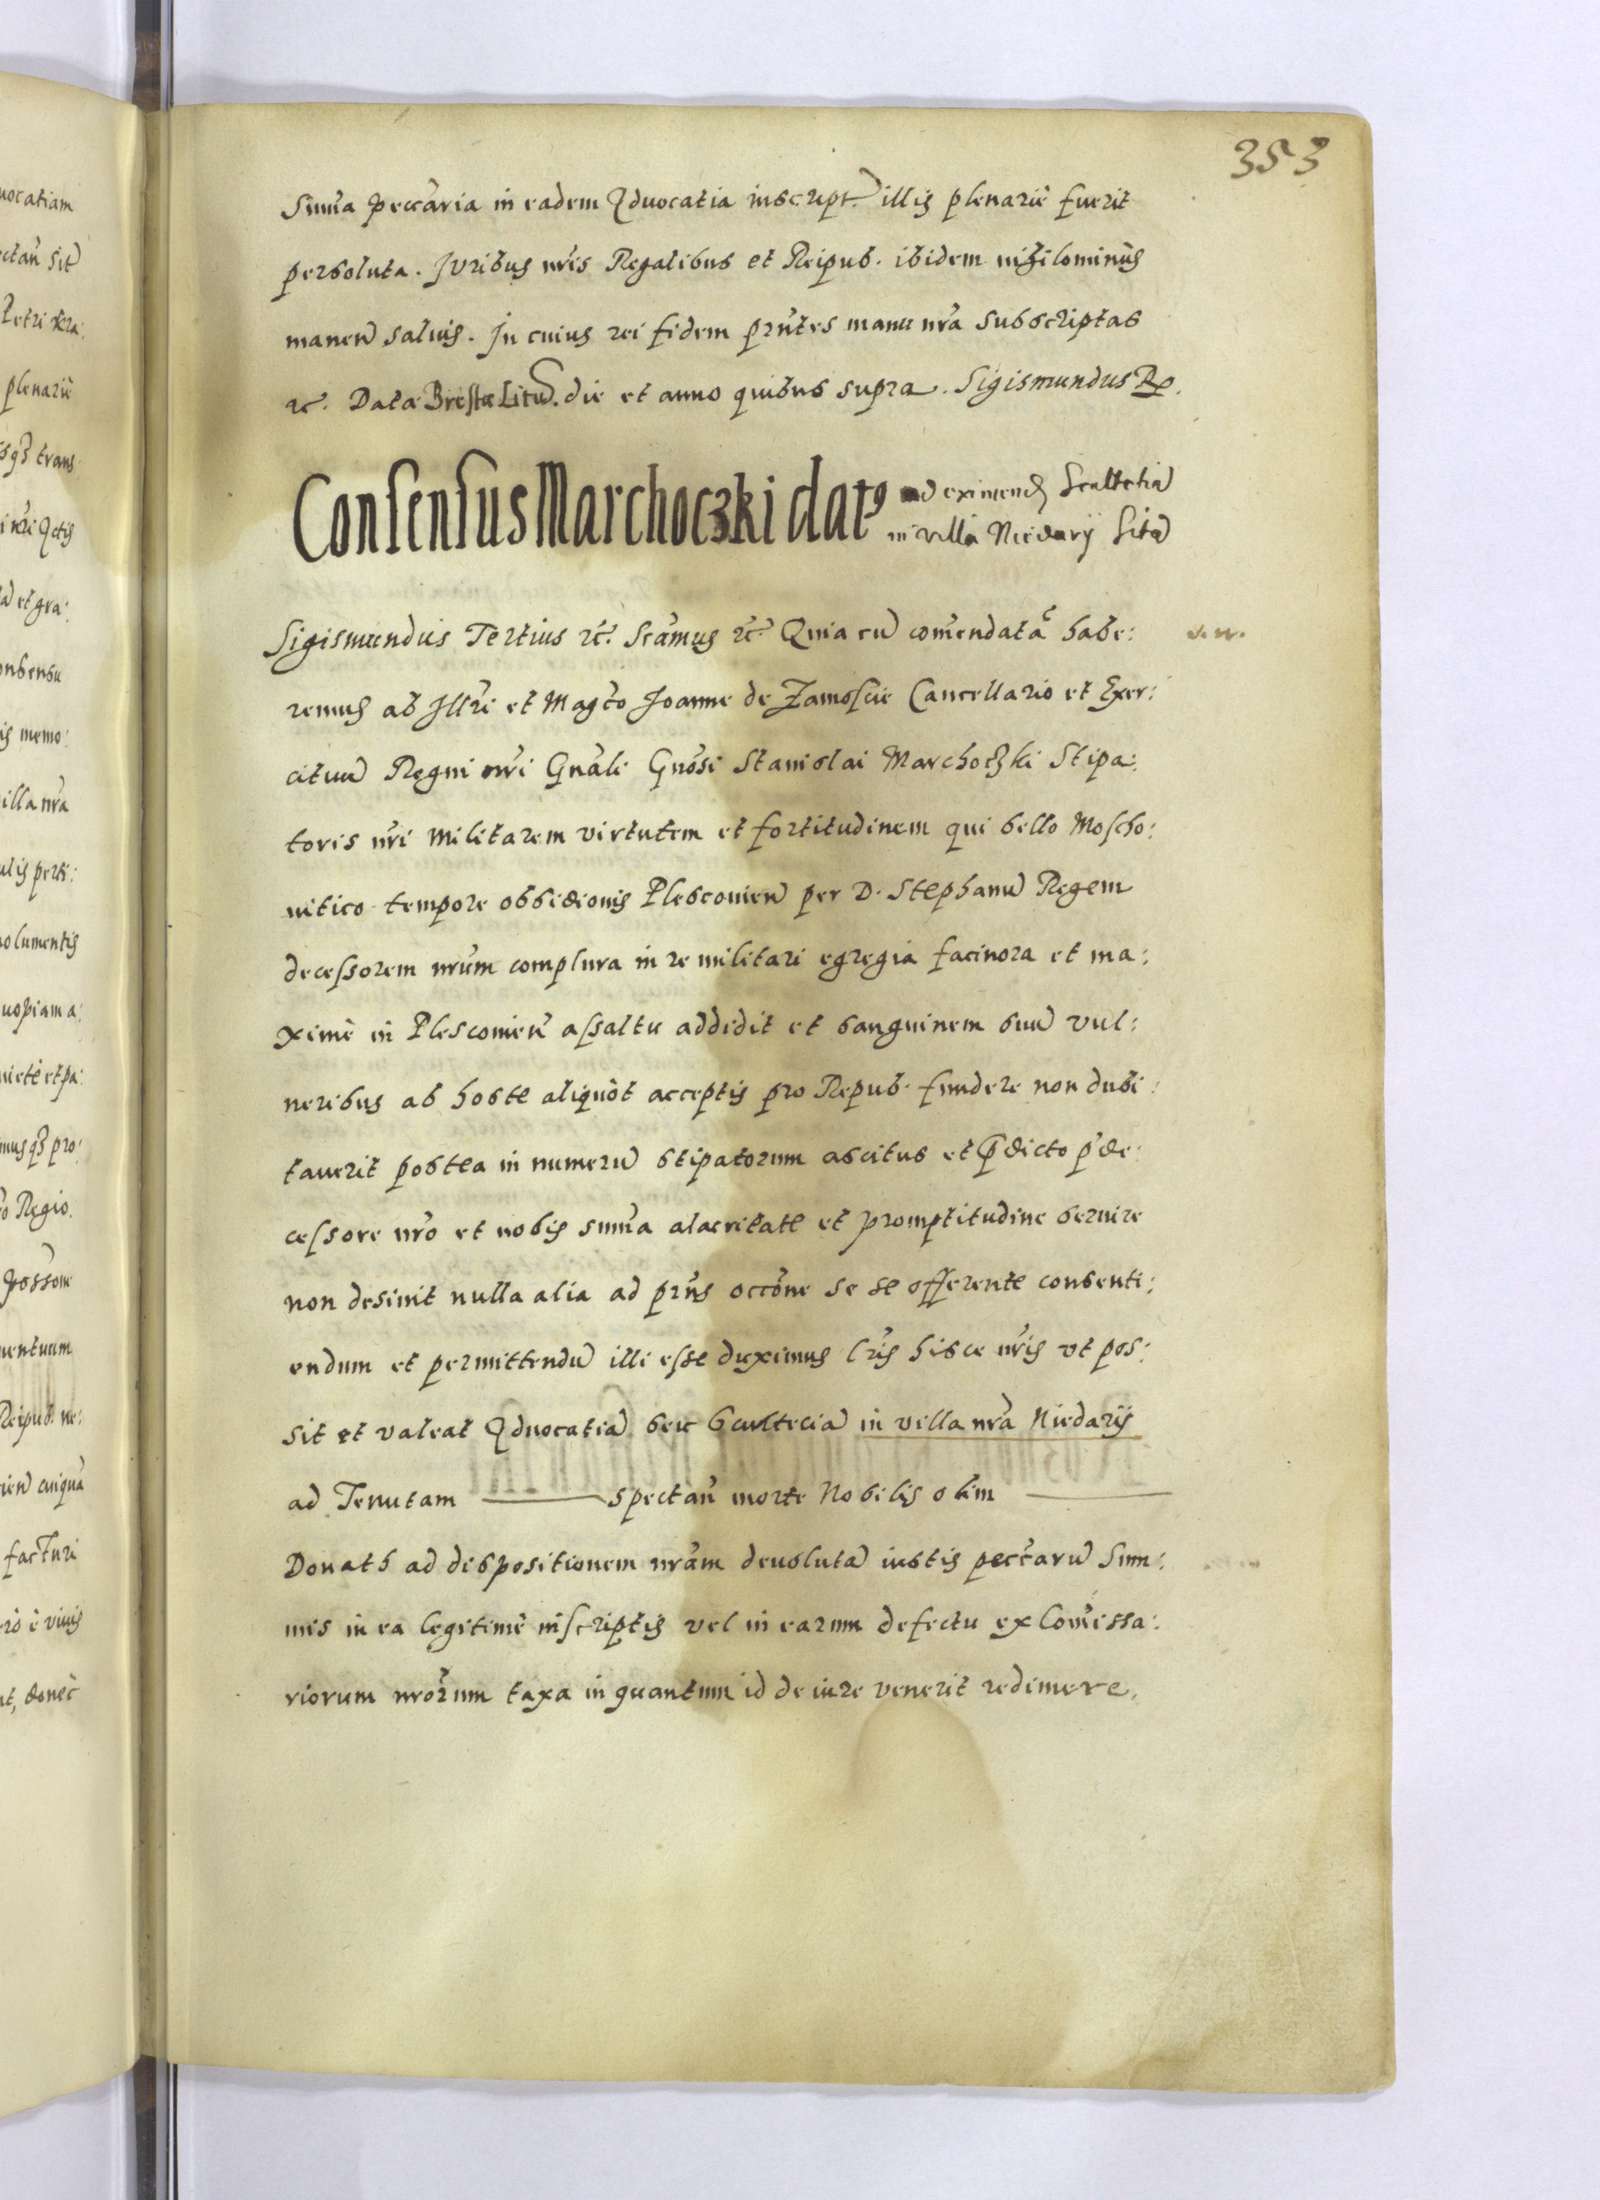 353
Sum̃a peccãria in eadem Advocatia inscript. illis plenariè fuerit
persoluta. Juribus nr̃is Regalibus et Reipub. ibidem nihilominùs
manen̄ salvis. In cuius rei fidem pr̃ntes manu nr̃a subscriptas
etc. Datæ Brestæ Litu̅. die et anno quibus supra. Sigismundus Rx.
Consensus Marchoczki datꝰ ad eximend̄ Scultetiā
in villa Niedarÿ sitā
Sigismundus Tertius etc. Scãmus etc. Quia cū com̃endatã habe:
remus ab Ill̃ri et Mag̃co Joanne de Zamoscie Cancellario et Exer:
cituū Regni nr̃i Gñali Gñosi Stanislai Marchoczki Stipa:
toris nr̃i militarem virtutem et fortitudinem qui bello Moscho:
vitico tempore obsidionis Plescovien̄ per D. Stephanū Regem
decessorem nr̃um complura in re militari egregia facinora et ma:
ximè in Plescovien̄ assaltu addidit et sanguinem suū vul:
neribus ab hoste aliquòt acceptis pro Repub. fundere non dubi:
taverit postea in numerū stipatorum ascitus et p̃dicto p̃de:
cessore nr̃o et nobis sum̃a alacritate et promptitudine servire
non desinit nulla alia ad pr̃ns occõne se se offerente consenti:
endum et permittendū illi esse duximus l̃ris hisce nr̃is ut pos:
sit et valeat Advocatiā seu Sculteciā in villa nr̃a Niedarÿ
ad Tenutam ——— spectan̄ morte Nobilis olim ———
Donath ad dispositionem nr̃am devolutā iustis peccãrū sum:
mis in ea legitimè inscriptis vel in earum defectu ex Com̃issa:
riorum nr̃orum taxa in quantum id de iure venerit redimere.